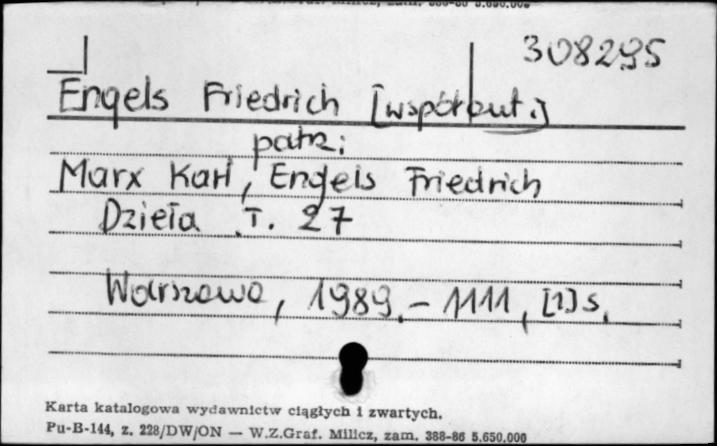 308295
Engels Friedrich [współaut.]
patrz:
Marx Karl, Engels Friedrich
Dzieła T. 27
Warszawa, 1989. - 1111, [1] s.
Karta katalogowa wydawnictw ciągłych i zwartych.
Pu-B-144, z. 228/DW/ON — W.Z.Graf. Milicz, zam. 388-86 5.650.000